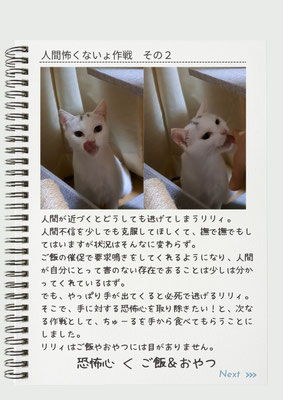 人間怖くないょ作戦　その２
人間が近づくとどうしても逃げてしまうリリィ。
人間不信を少しでも克服してほしくて、撫で撫でもし
てはいますが状況はそんなに変わらず。
ご飯の催促で要求鳴きをしてくれるようになり、人間
が自分にとって害のない存在であることは少しは分か
ってくれているはず。
でも、やっぱり手が出てくると必死で逃げるリリィ。
そこで、手に対する恐怖心を取り除きたい！と、次な
る作戦として、ちゅーるを手から食べてもらうことに
しました。
リリィはご飯やおやつには目がありません。
恐怖心 く ご飯&おやつ
Next >>>